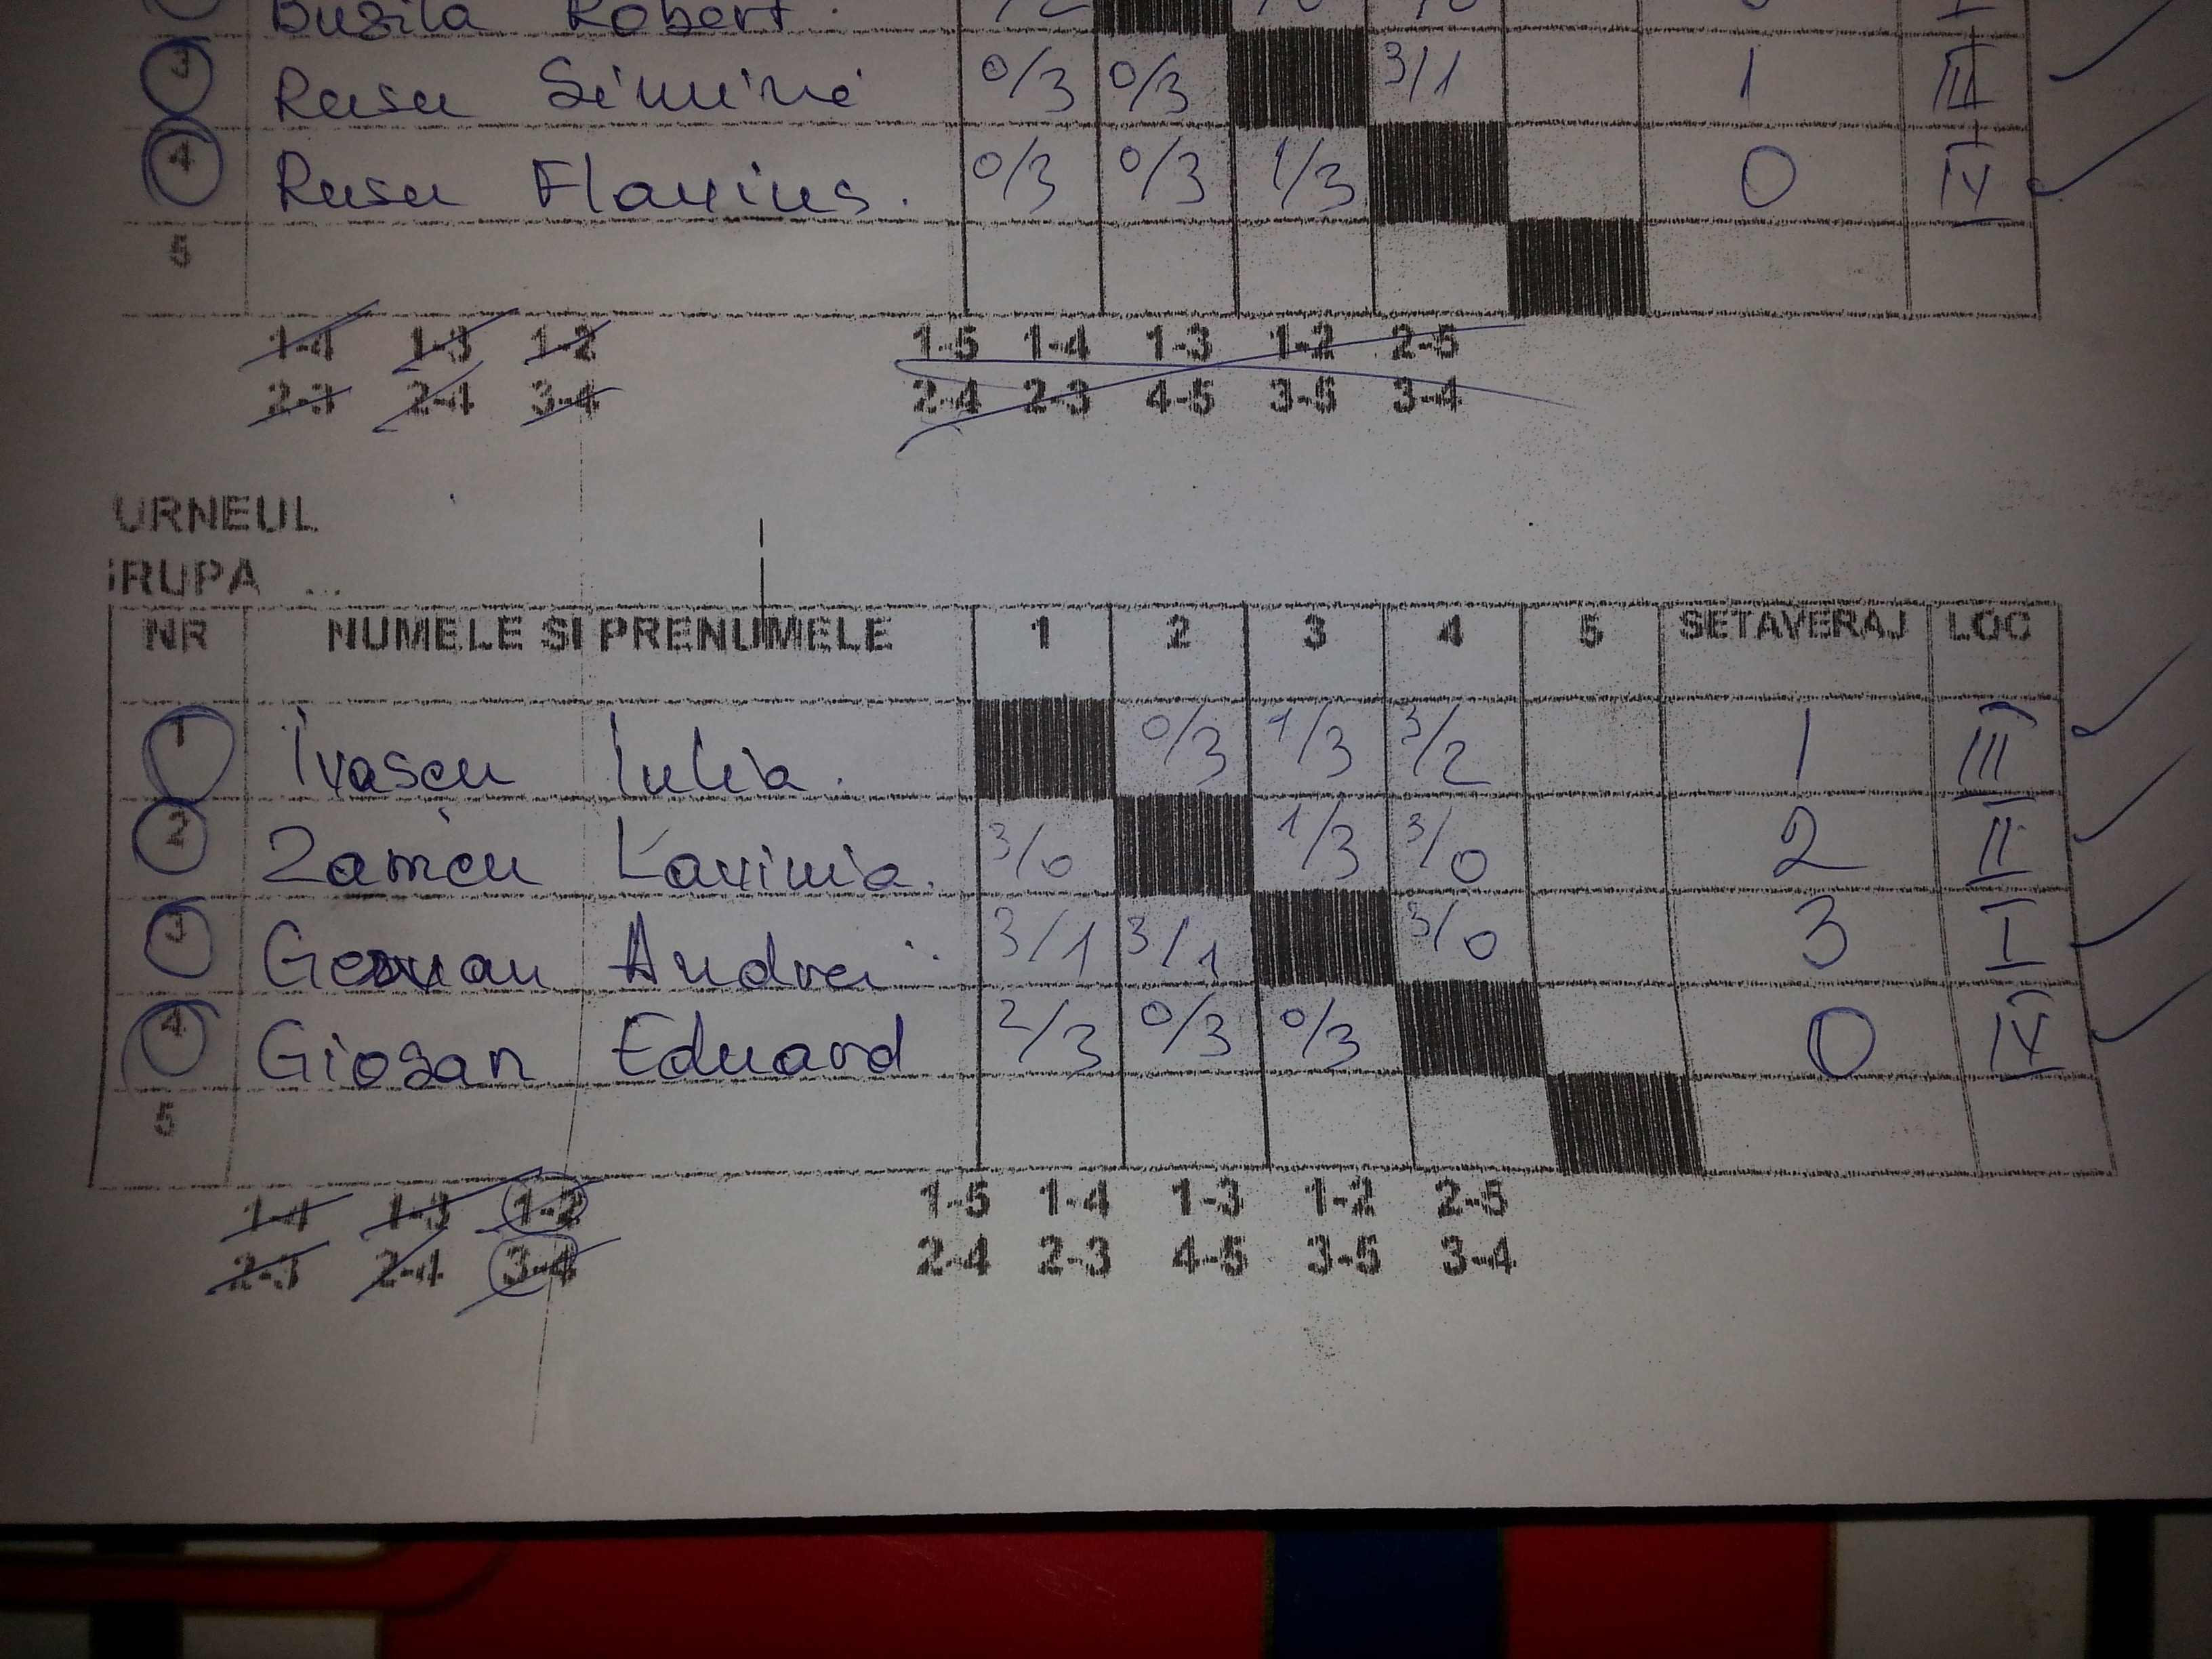 Buzila Robert.
3 Rusu Simina 0/3 0/3 3/1 1 III
4 Rusu Flavius. 0/3 0/3 1/3 0 IV
5
1-4 1-3 1-2 1-5 1-4 1-3 1-2 2-5
2-3 2-4 3-4 2-4 2-3 4-5 3-5 3-4
URNEUL
GRUPA ...
NR NUMELE SI PRENUMELE 1 2 3 4 5 SETAVERAJ LOC
1 Ivascu Iulia. 0/3 1/3 3/2 1 III
2 Zamcu Lavinia. 3/0 1/3 3/0 2 II
3 German Andrei. 3/1 3/1 3/0 3 I
4 Giosan Eduard 2/3 0/3 0/3 0 IV
5
1-4 1-3 1-2 1-5 1-4 1-3 1-2 2-5
2-3 2-4 3-4 2-4 2-3 4-5 3-5 3-4